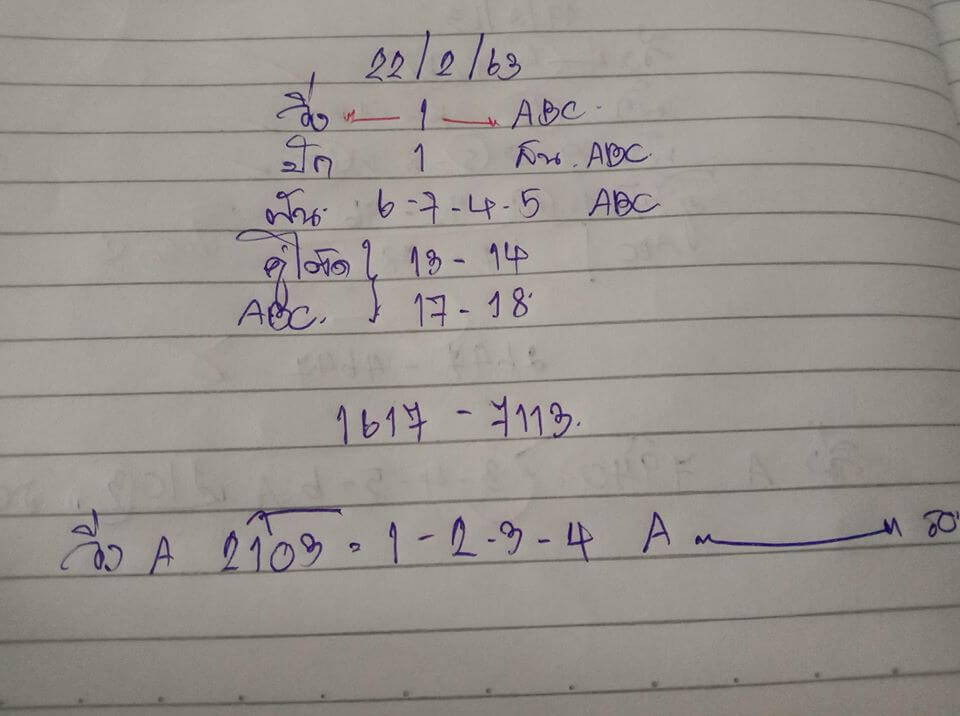 22/2/63
วิ่ง ← 1 → ABC.
ปัก 1 สิน. ABC.
ฟัน. 6-7-4-5 ABC
คู่โต๊ด } 13 - 14
ABC. } 17 - 18
1617 - 7113.
วิ่ง A 2103 = 1 - 2 - 3 - 4 A